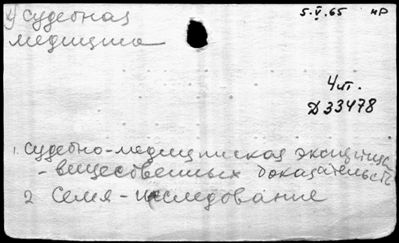 5.V.65 нр
у) Судебная
медицина
4ит.
Д 33478
1. Судебно-медицинская экспертиза
- вещественных доказательств
2 Семя - исследование